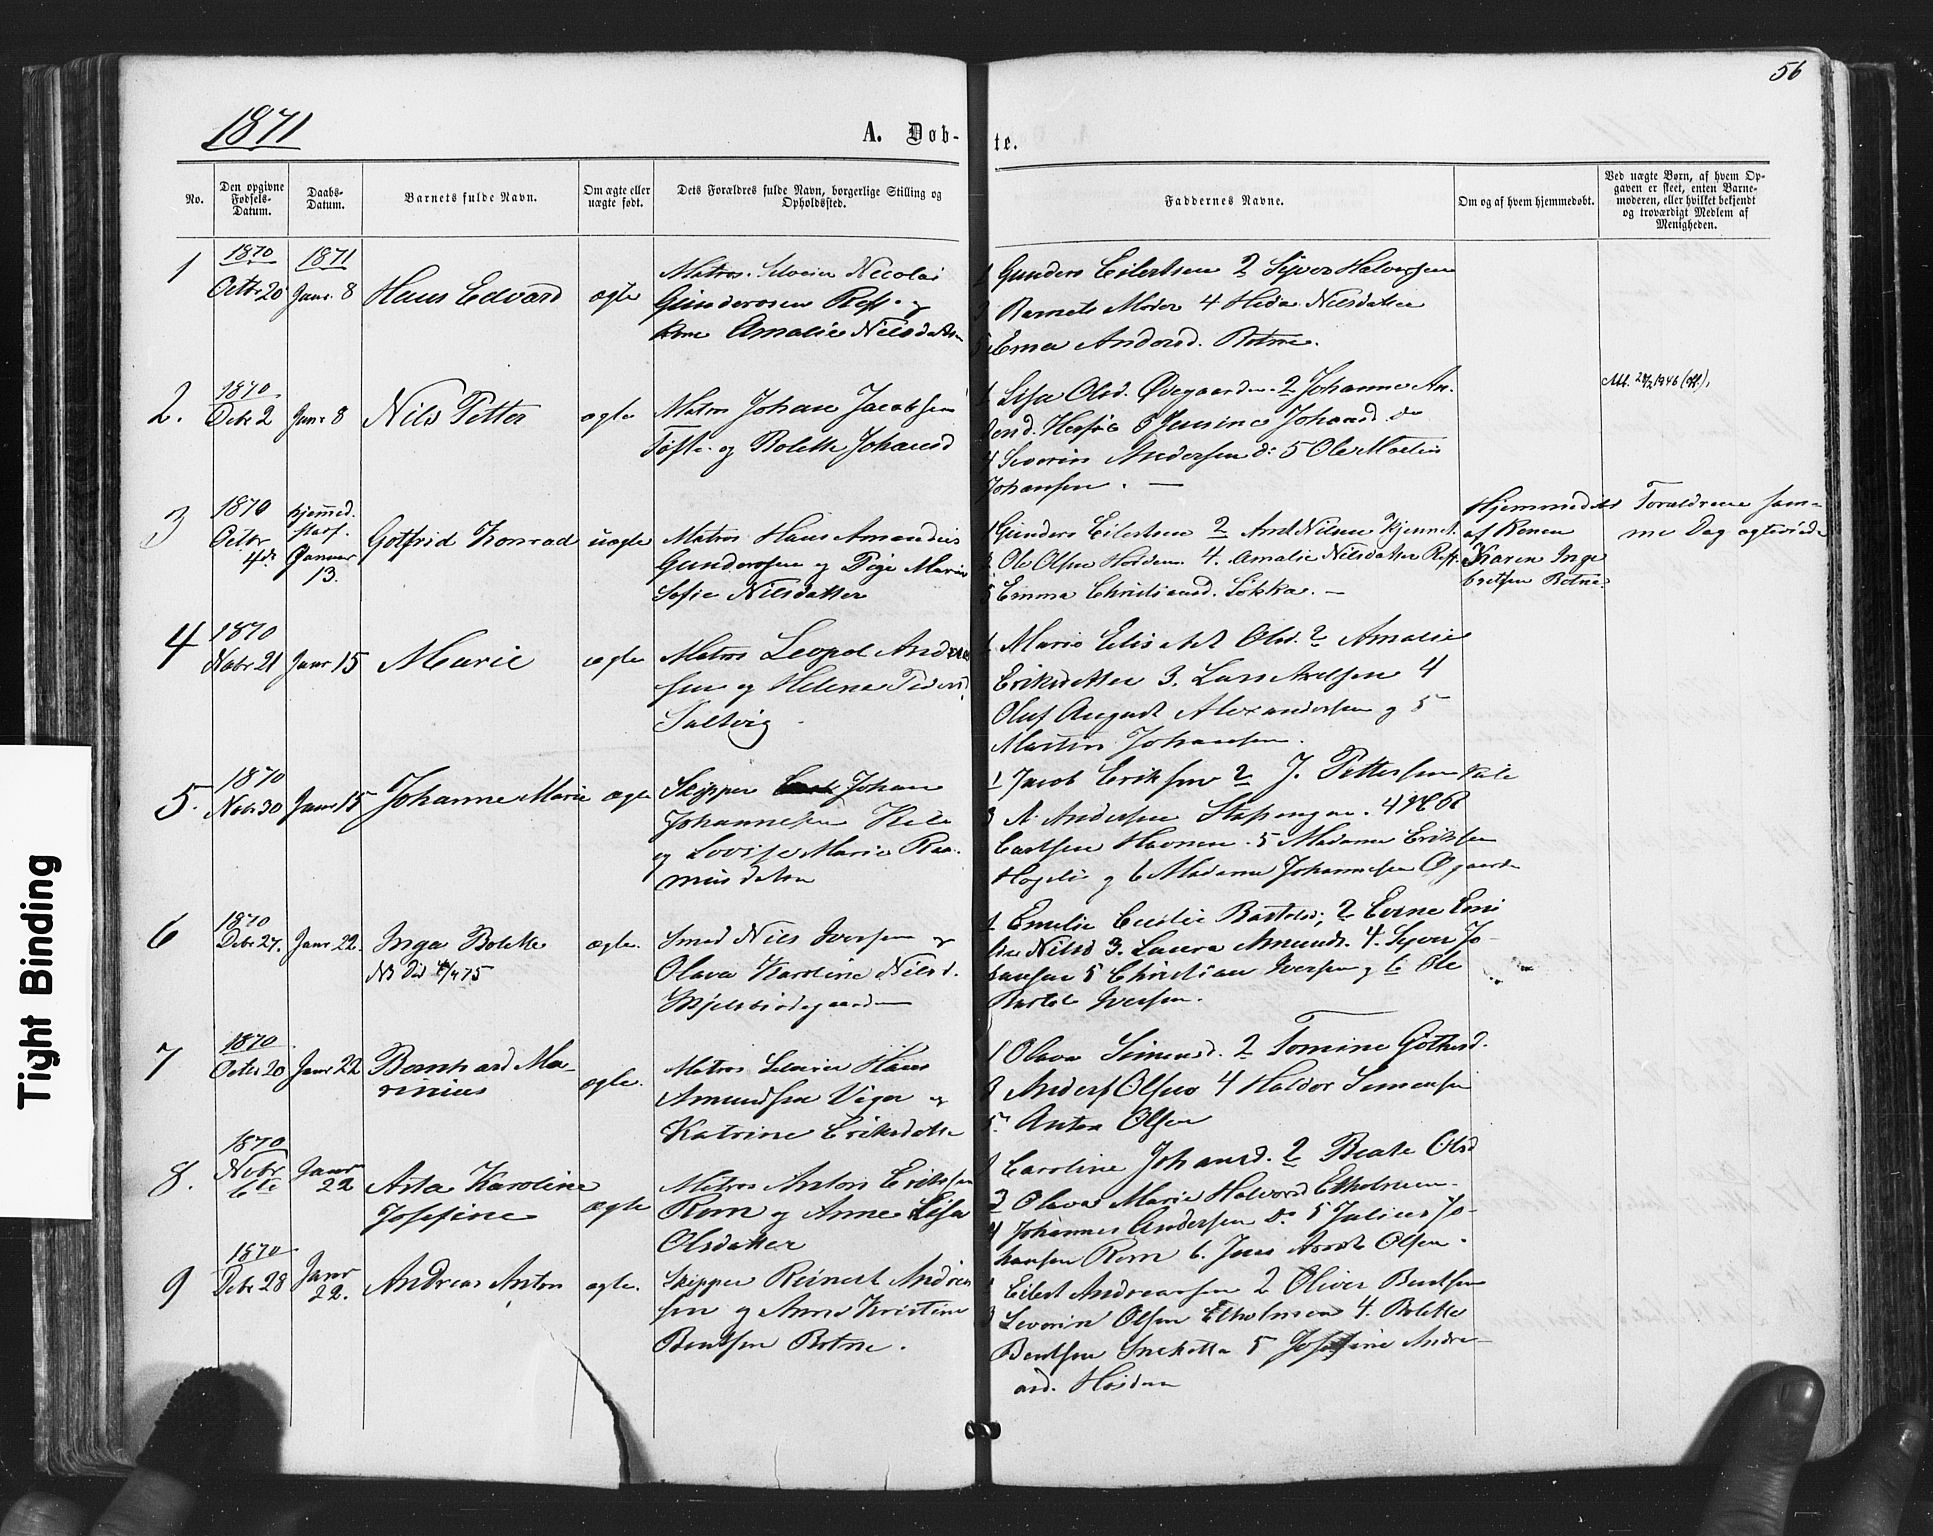 56
1871
A. Døb-
te.
No.
Den opgivne
Fødsels-
Datum.
Daabs-
Datum.
Barnets fulde Navn.
Om ægte eller
uægte født.
Dets Forældres fulde Navn, borgerlige Stilling og
Opholdssted.
Faddernes Navne.
Om og af hvem hjemmedøbt.
Ved uægte Børn, af hvem Op-
gaven er skeet, enten Barne-
moderen, eller hvilket bekjendt
og troværdigt Medlem af
Menigheden.
1
1870
Octbr 20
1871
Janr. 8
Hans Edvard
ægte
Matros Nicolai
Gunderosen Røff. og
Kone Amalie Nilsdatter
1 Gunders Eilertsen 2 Syver Halvorsen
3 Barnets Moder 4 Nilsdatter
5 Andersd. Botne.
2.
1870
Debr 2
Janr 8
Nils Petter
ægte
Matros Johan Jacobsen
Tofte og Bolette Johansd
1 Lisa Olsd. Øvegaarden 2 Johanne An-
3 Johansd. do
4 Severin Andersen do 5 Ole Martin
Johansen. —
3
1870
Octbr
4de
hjemmed.
Januar
13.
Gotfrid Konrad
uægte
Matros Hans Amandus
Gunderosen og Pige Maria
Sofie Nilsdatter
1 Gunders Eilertsen 2 Nilsen
3. Ole Olsen 4. Amalie Nilsdatter Røff.
5 Emma Christiansd. Løkka. —
Hjemmedøbt
af Konen
Karen Inge
bretsen Botne.
Forældrene sam-
me Dag ægteviede
4
1870
Nobr 21
Janr 15
Marie
ægte
Matros Leopol Andrea
sen og Helene Pedersd
Saltvig.
1 Marie Elisabet Olsd. 2 Amalie
Eriksdatter 3. Lars Axelsen 4
Oluf August Alexandersen og 5
Martin Johansen.
5.
1870
Nobr 30
Janr 15
Johanne Marie
ægte
Skipper Johan
Johannesen Kile
og Lovise Marie Ras-
musdatter
1 Jacob Eriksen 2 J. Pettersen Kile
3 A. Andersen Stapengen. 4
Carlsen Havnen. 5 Madame Eriksen
og 6 Madame Johannesen Øgaarden
6
1870
Debr 27.
Janr 22.
Inga Bolette
NB Død 4/4 75
ægte.
Smed Nils Iversen og
Olava Karoline Nilsd.
1 Emelie Cecilie Bartolsd; 2 Evine Emi
lie Nilsd 3. Laura Amunds. 4. Syver Jo-
hansen 5 Christian Iversen og 6 Ole
Bartol Iversen.
7
1870
Octbr 20
Janr 22
Bernhard Ma-
rinius
ægte.
Matros Severin Hans
Amundsen Viger og
Katrine Eriksdatter
1 Olava Simensd. 2 Tomine
3 Anders Olsen 4 Haldor Simensen
5. Anton Olsen
8.
1870
Nobr
6te
Janr
22
Asta Karoline
Josefine
ægte
Matros Anton Eriksen
Røm og Anne Lisa
Olsdatter
1 Caroline Johansd. 2 Beate Olsd
3 Olava Marie Halvorsd Etholmen.
4 Johannes Andersen do 5 Julius Jo-
hansen Røm 6. Jens Arndt Olsen.
9
1870
Debr 28
Janr
22.
Andreas Anton
ægte.
Skipper Reinert Andrea
sen og Anne Kristine
Bentsen Botne.
1 Eilert Andreassen 2 Oliver Bentsen
3 Severin Olsen Etholmen 4. Bolette
Bentsen Snekotta 5 Josefine Andre-
asd.
Tight Binding